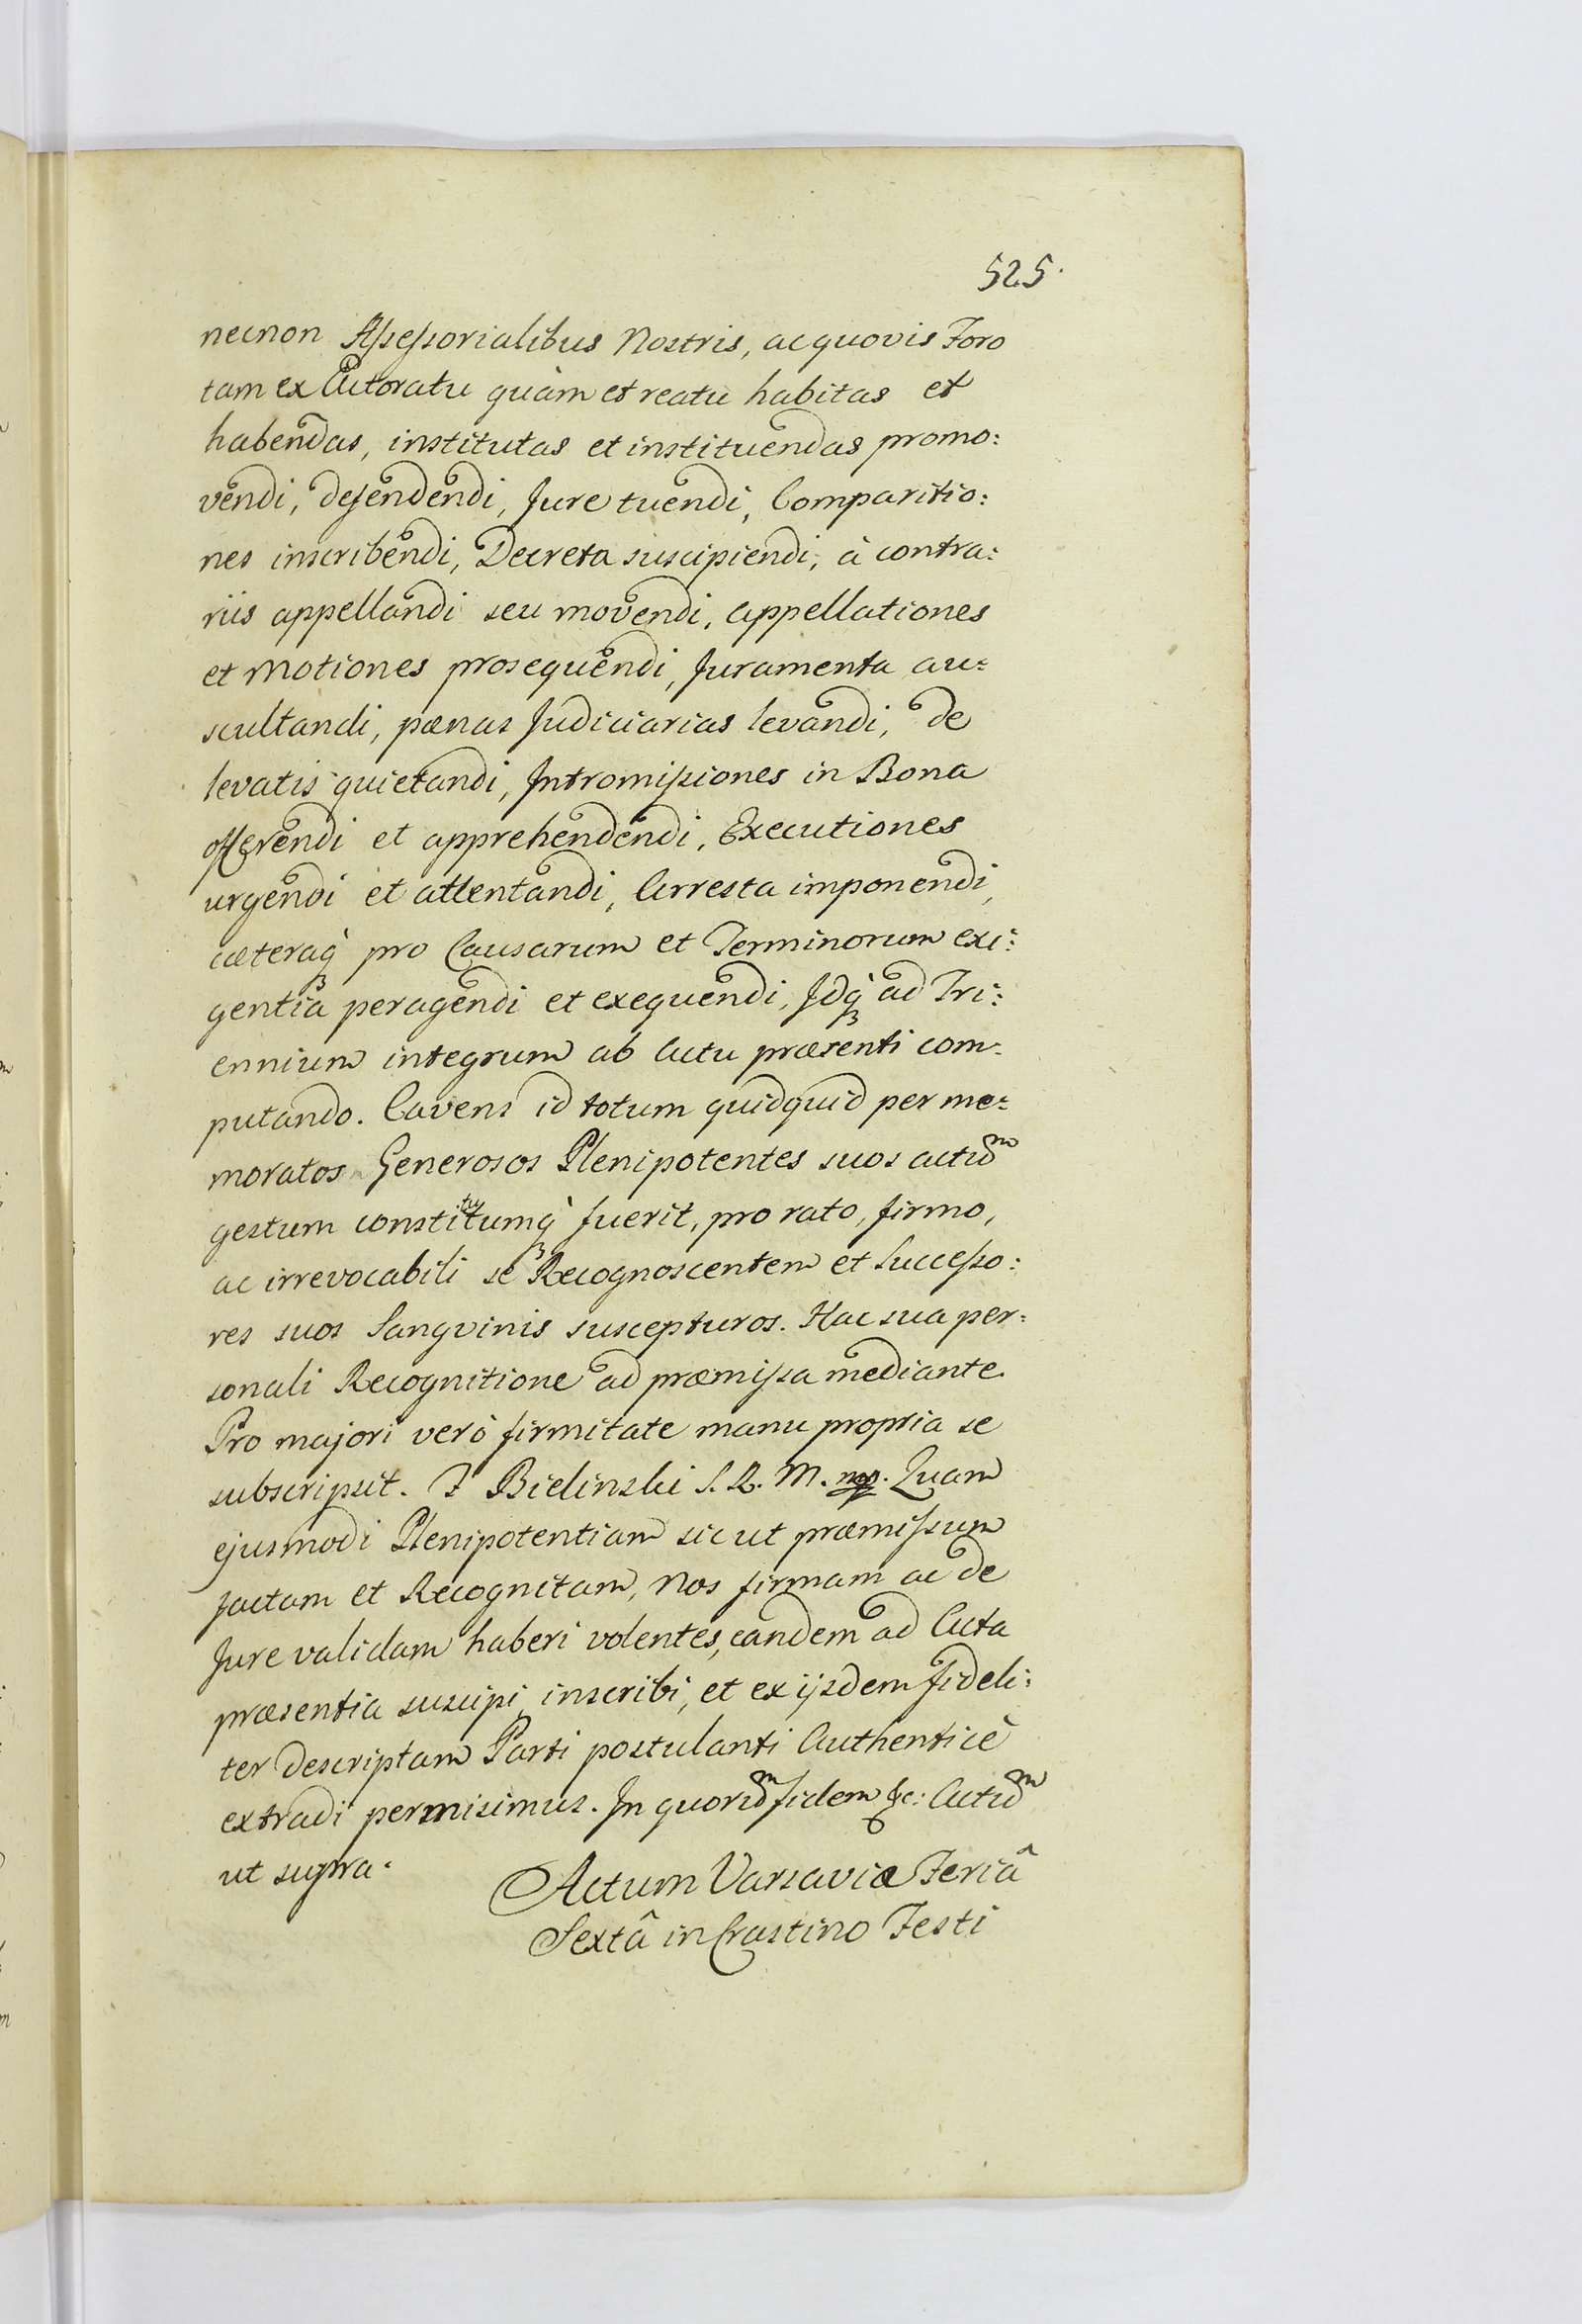 525.
necnon Assessorialibus Nostris, ac quovis Foro
tam ex Actoratu quàm et reatu habitas et
habendas, institutas et instituendas promo:
vendi, defendendi, Jure tuendi, Comparitio:
nes inscribendi, Decreta suscipiendi, à contra:
riis appellandi seu movendi, appellationes
et Motiones prosequendi, Juramenta au:
scultandi, pænas Judiciarias levandi, de
levatis quietandi, Intromissiones in Bona
offerendi et apprehendendi, Executiones
urgendi et attentandi, Arresta imponendi,
cæteraq̀ pro Causarum et Terminorum exi:
gentia peragendi et exequendi, Idq̀ ad Tri:
ennium integrum ab Actu præsenti com:
putando. Cavens id totum quidquid per me:
moratos Generosos Plenipotentes suos actũm
gestum constitutumq̀ fuerit, pro rato, firmo,
ac irrevocabili se Recognoscentem et Successo:
res suos Sangvinis suscepturos. Hac sua per:
sonali Recognitione ad præmissa mediante.
Pro majori verò firmitate manu propria se
subscripsit. F Bielinski S. R. M. mp. Quam
ejusmodi Plenipotentiam sic ut præmissum
factam et Recognitam, Nos firmam ac de
Jure validam haberi volentes, eandem ad Acta
præsentia suscipi, inscribi, et ex ijsdem fideli:
ter descriptam Parti postulanti Authenticè
extradi permisimus. In quorũm fidem &c: Actũm
ut supra.
Actum Varsaviæ Feriâ
Sextâ in Crastino Festi